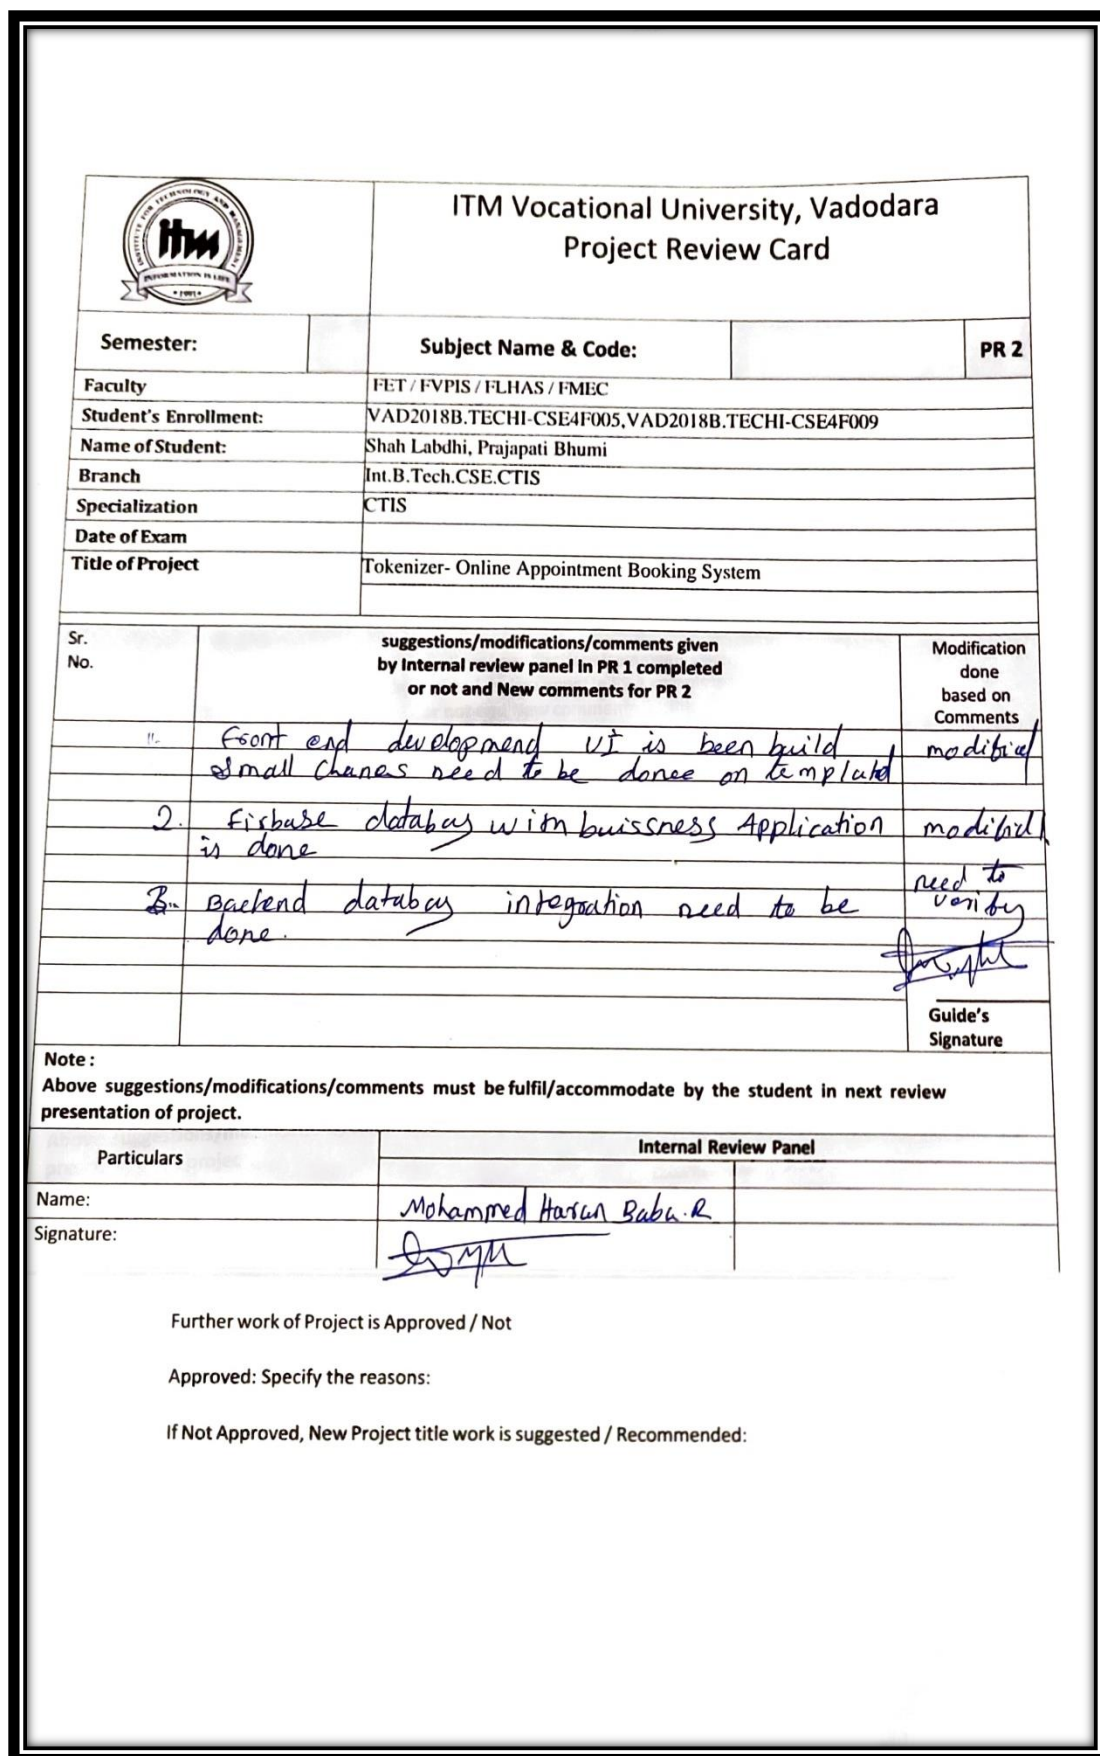 INSTITUTE FOR TECHNOLOGY AND MANAGEMENT
itm
INFORMATION IS LIFE
ITM Vocational University, Vadodara
Project Review Card
Semester:
Subject Name & Code:
PR 2
Faculty
FET / FVPIS / FLHAS / FMEC
Student's Enrollment:
VAD2018B.TECHI-CSE4F005,VAD2018B.TECHI-CSE4F009
Name of Student:
Shah Labdhi, Prajapati Bhumi
Branch
Int.B.Tech.CSE.CTIS
Specialization
CTIS
Date of Exam
Title of Project
Tokenizer- Online Appointment Booking System
Sr.
No.
suggestions/modifications/comments given
by Internal review panel in PR 1 completed
or not and New comments for PR 2
Modification
done
based on
Comments
Front end UI is been build
small need to be on
2. Firbase with buissness Application
is done
3. Backend need to be
done.
need to
Guide's
Signature
Note :
Above suggestions/modifications/comments must be fulfil/accommodate by the student in next review
presentation of project.
Particulars
Internal Review Panel
Name:
Mohammed Baba.R
Signature:
Further work of Project is Approved / Not
Approved: Specify the reasons:
If Not Approved, New Project title work is suggested / Recommended: